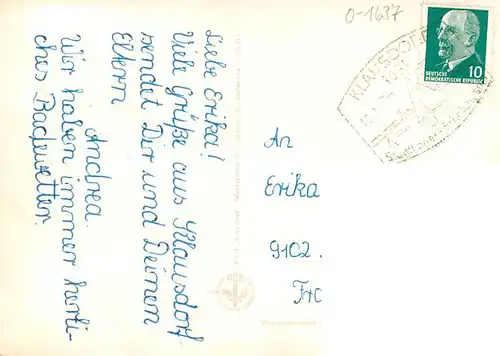 0-1637
KLAUSDORF
DEUTSCHE
DEMOKRATISCHE REPUBLIK
10
Liebe Erika!
Viele Grüße aus Klausdorf
sendet Dir und Deinen
Eltern
Andrea.
Wir haben immer herrli-
ches Badewetter.
An
Erika
9102.
Frc